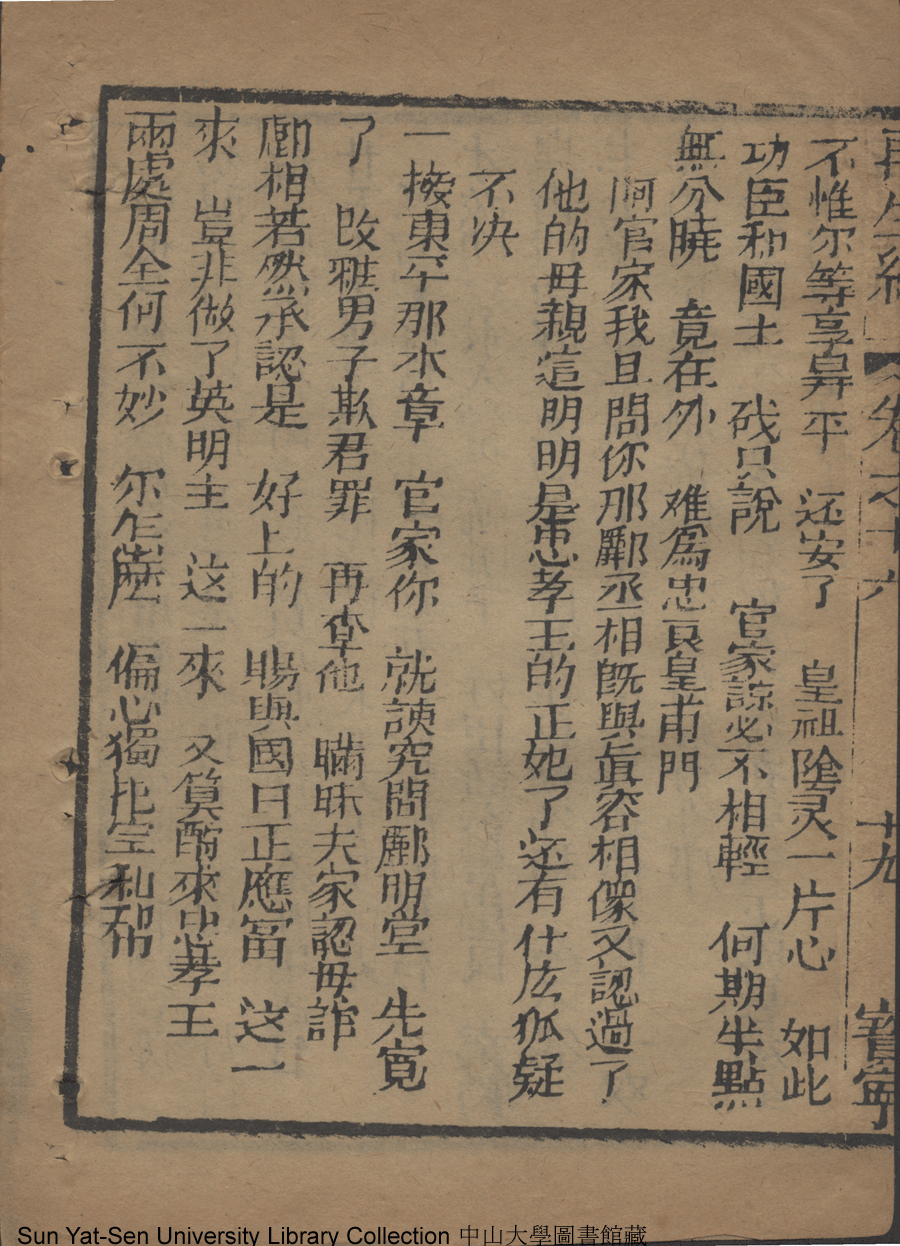 再生緣 卷之十六 十九 寳寧
不惟尔等享昇平 还安了 皇祖陰灵一片心 如此
功臣和國土 我只說 官家諒必不相輕 何期半點
無分曉 竟在外 难爲忠良皇甫門
阿官家我且問你那酈丞相既與真容相像又認過了
他的母親這明明是忠孝王的正妃了还有什庅狐疑
不决
一接東平那本章 官家你 就該究問酈明堂 先寬
了 改粧男子欺君罪 再查他 瞞昧夫家認母誆
酈相若然承認是 好上的 賜與國日正應當 这一
來 豈非做了英明主 这一來 又算酧來忠孝王
兩處周全何不妙 尔乍庅 偏心獨
Sun Yat-Sen University Library Collection 中山大學圖書館藏